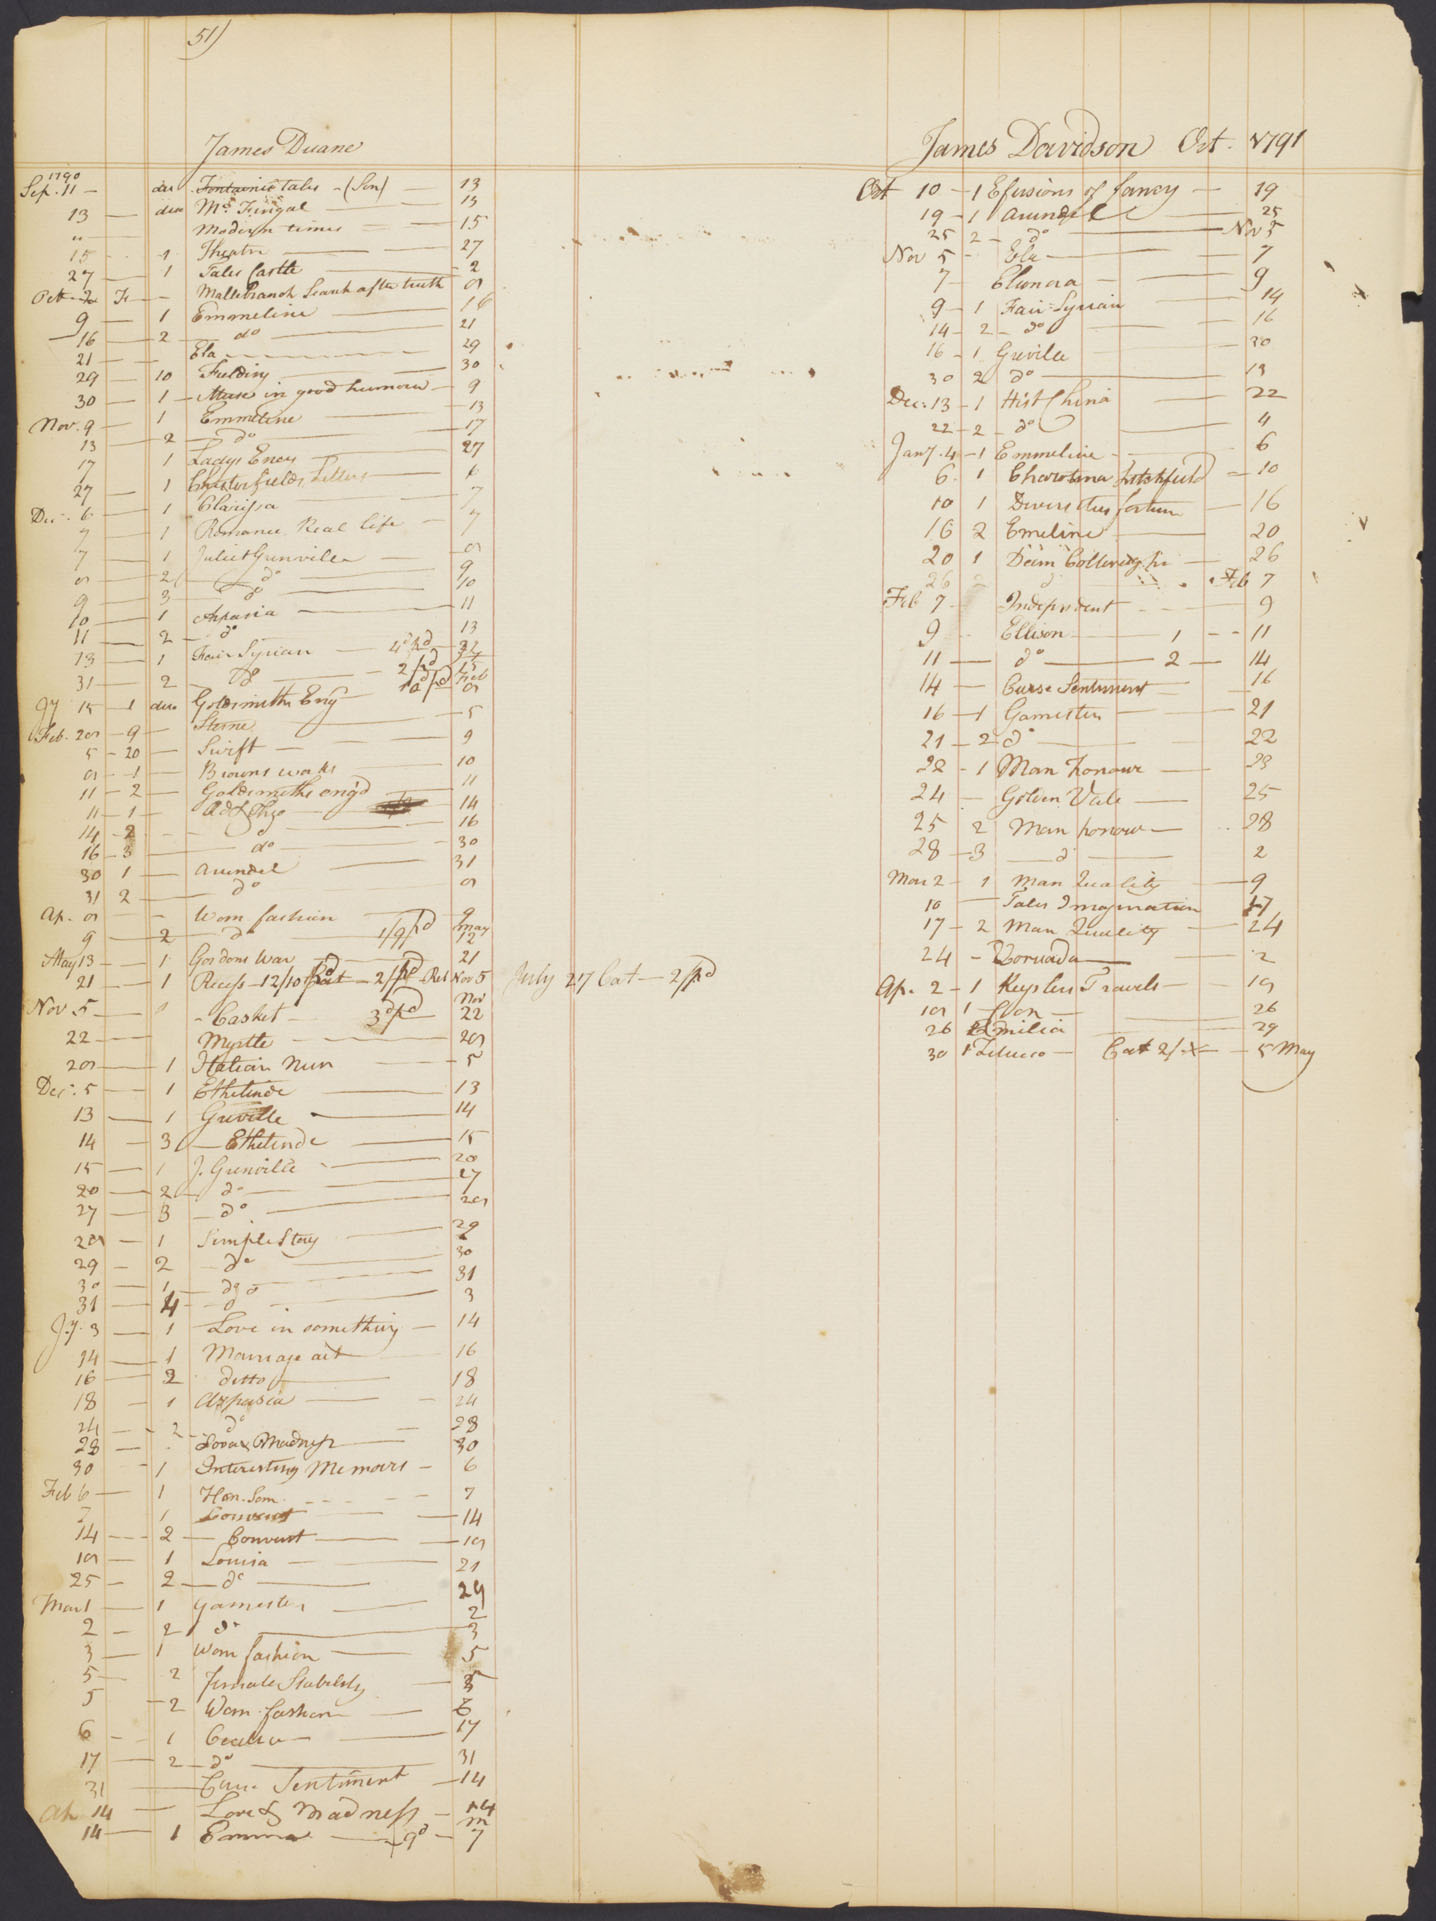 51)
James Duane
1790
Sep. 11 - duo Fontaines tales - (Son) - 13
13 - duo Mc Fingal - 13
" Modern times - 15
15 - 1 Theatre - 27
27 - 1 Tales Castle - 2
Oct. 2 Fr - Mallebranch Search after truth 8
9 - 1 Emmeline - 16
16 - 2 do - 21
21 - Ela - 29
29 - 10 Fielding - 30
30 - 1 - Muse in good humour - 9
Nov. 9 - 1 Emmeline - 13
13 - 2 - do - 17
17 1 Ladys Ency - 27
27 - 1 Chesterfields Letters - 6
Dec. 6 - 1 Clarissa - 7
7 1 Romance Real life - 7
7 - 1 Juliet Grenville - 8
8 - 2 - do - 9
9 - 3 - do - 10
10 - 1 Aspasia - 11
11 - 2 - do - 13
13 - 1 Fair Syrian - 4d pd
31 - 2 - do - 2/pd 15
Jy 15 - 1 duo Goldsmiths Eng - pd Feb 8
Feb. 28 - 9 - Sterne - 5
5 - 20 - Swift - 9
8 - 1 - Browns works - 10
11 - 2 - Goldsmiths engd - 11
11 - 1 - Ad & Theo - 14
14 - 2 - - 16
16 - 3 - do - 30
30 1 - Arundel - 31
31 2 - do - 8
Ap. 8 - - Wom fashion - 9
9 - 2 - do - 1/9 pd may 12
May 13 - 1 Gordons War - 21
21 - 1 Recess - 12/10 pd Cat - 2/pd Ret Nov 5 July 27 Cat - 2/pd
Nov. 5 - - Casket - 3d pd Nov 22
22 - Myrtle - 28
28 - 1 Italian Nun - 5
Dec. 5 - 1 Ethelinde - 13
13 - 1 Greville - 14
14 - 3 - Ethelinde - 15
15 - 1 J. Grenville - 20
20 - 2 - do - 27
27 - 3 - do - 28
28 - 1 Simple Story - 29
29 - 2 - do - 30
30 - 1 - do - 31
31 - 4 - do - 3
Jy. 3 - 1 - Love in something - 14
14 - 1 Marriage act - 16
16 - 2 ditto - 18
18 - 1 Aspasia - 24
24 - 2 - do - 28
28 - Love & Madness - 30
30 - 1 Interesting Memoirs - 6
Feb 6 - 1 Hon. Som - 7
7 1 Convent - 14
14 - 2 - Convent - 18
18 - 1 Louisa - 21
25 - 2 - do - 29
Mar 1 - 1 Gamesters - 2
2 - 2 do - 3
3 - 1 Wom fashion - 5
5 - 2 female Stability - 5
5 - 2 Wom fashion - 6
6 - 1 Cecilia - 17
17 - 2 - do - 31
31 - Curse Sentiment - 14
Ap 14 - Love & Madness - 14
14 - 1 Emma - 9d - m 7
James Davidson Oct. 1791
Oct 10 - 1 Efusions of fancy - 19
19 - 1 Arundel - 25
25 2 - do - Nov 5
Nov 5 - Ela - 7
7 - Elenora - 9
9 - 1 Fair Syrian - 14
14 - 2 - do - 16
16 - 1 Greville - 30
30 2 do - 13
Dec. 13 - 1 Hist China - 22
22 - 2 - do - 4
Jany. 4 - 1 Emmeline - 6
6 . 1 Charolina Litchfield - 10
10 1 Diversities fortune - 16
16 2 Emeline - 20
20 1 Dean Colleraigh - 26
26 2 do - Feb 7
Feb 7 - Independent - 9
9 - Ellison - 1 - 11
11 - do - 2 - 14
14 - Curse Sentiment - 16
16 - 1 Gamesters - 21
21 - 2 do - 22
22 - 1 Man honour - 23
24 - Golden Vale - 25
25 2 Man honour - 28
28 - 3 - do - 2
Mar 2 - 1 Man Quality - 9
10 - Tales Imagination 17
17 - 2 Man Quality - 24
24 - - 2
Ap. 2 - 1 Keyslers Travels - 18
18 1 - 26
26 Emilia - 29
30 1 Zeluco - Cat 2/ - 5 May